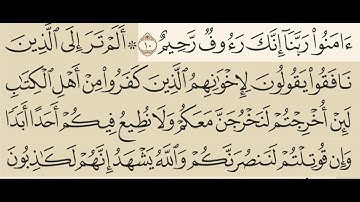 ءَامَنُوا۟ رَبَّنَآ إِنَّكَ رَءُوفٌ رَّحِيمٌ ١٠ ۞ أَلَمْ تَرَ إِلَى ٱلَّذِينَ
نَافَقُوا۟ يَقُولُونَ لِإِخْوَٰنِهِمُ ٱلَّذِينَ كَفَرُوا۟ مِنْ أَهْلِ ٱلْكِتَٰبِ
لَئِنْ أُخْرِجْتُمْ لَنَخْرُجَنَّ مَعَكُمْ وَلَا نُطِيعُ فِيكُمْ أَحَدًا أَبَدًا
وَإِن قُوتِلْتُمْ لَنَنصُرَنَّكُمْ وَٱللَّهُ يَشْهَدُ إِنَّهُمْ لَكَٰذِبُونَ